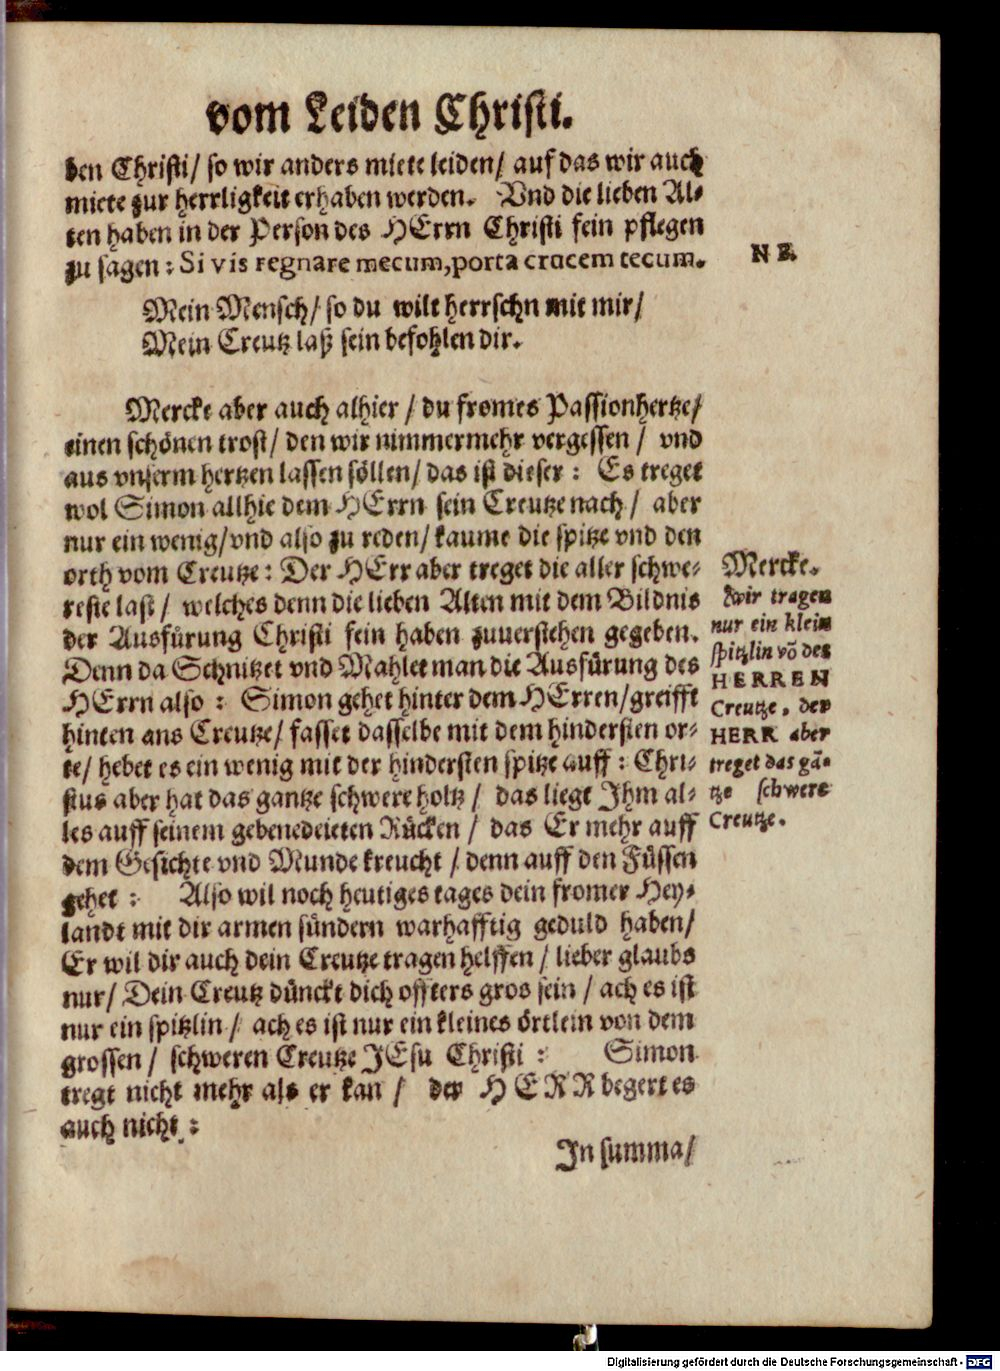 vom Leiden Christi.
den Christi/ so wir anders miete leiden/ auf das wir auch
miete zur herrligkeit erhaben werden. Vnd die lieben Al-
ten haben in der Person des HErrn Christi fein pflegen
zu sagen: Si vis regnare mecum, porta crucem tecum.
NB.
Mein Mensch/ so du wilt herrschn mit mir/
Mein Creutz laß sein befohlen dir.
Mercke aber auch alhier / du fromes Passionhertze/
einen schönen trost/ den wir nimmermehr vergessen / vnd
aus vnserm hertzen lassen söllen/ das ist dieser: Es treget
wol Simon allhie dem HErrn sein Creutze nach/ aber
nur ein wenig/ vnd also zu reden/ kaume die spitze vnd den
orth vom Creutze: Der HErr aber treget die aller schwe-
reste last/ welches denn die lieben Alten mit dem Bildnis
der Ausfürung Christi fein haben zuuerstehen gegeben.
Denn da Schnitzet vnd Mahlet man die Ausfürung des
HErrn also: Simon gehet hinter dem HErren/ greifft
hinten ans Creutze/ fasset dasselbe mit dem hindersten or-
te/ hebet es ein wenig mit der hindersten spitze auff: Chri-
stus aber hat das gantze schwere holtz / das liegt Ihm al-
les auff seinem gebenedeieten Rücken / das Er mehr auff
dem Gesichte vnd Munde kreucht / denn auff den Füssen
gehet: Also wil noch heutiges tages dein fromer Hey-
landt mit dir armen sündern warhafftig geduld haben/
Er wil dir auch dein Creutze tragen helffen / lieber glaubs
nur/ Dein Creutz dünckt dich offters gros sein / ach es ist
nur ein spitzlin / ach es ist nur ein kleines örtlein von dem
grossen / schweren Creutze JEsu Christi: Simon
tregt nicht mehr als er kan / der HERR begert es
auch nicht:
In summa/
Mercke.
Wir tragen
nur ein klein
spitzlin võ des
HERREN
Creutze, der
HERR aber
treget das gã-
tze schwere
Creutze.
Digitalisierung gefördert durch die Deutsche Forschungsgemeinschaft - DFG